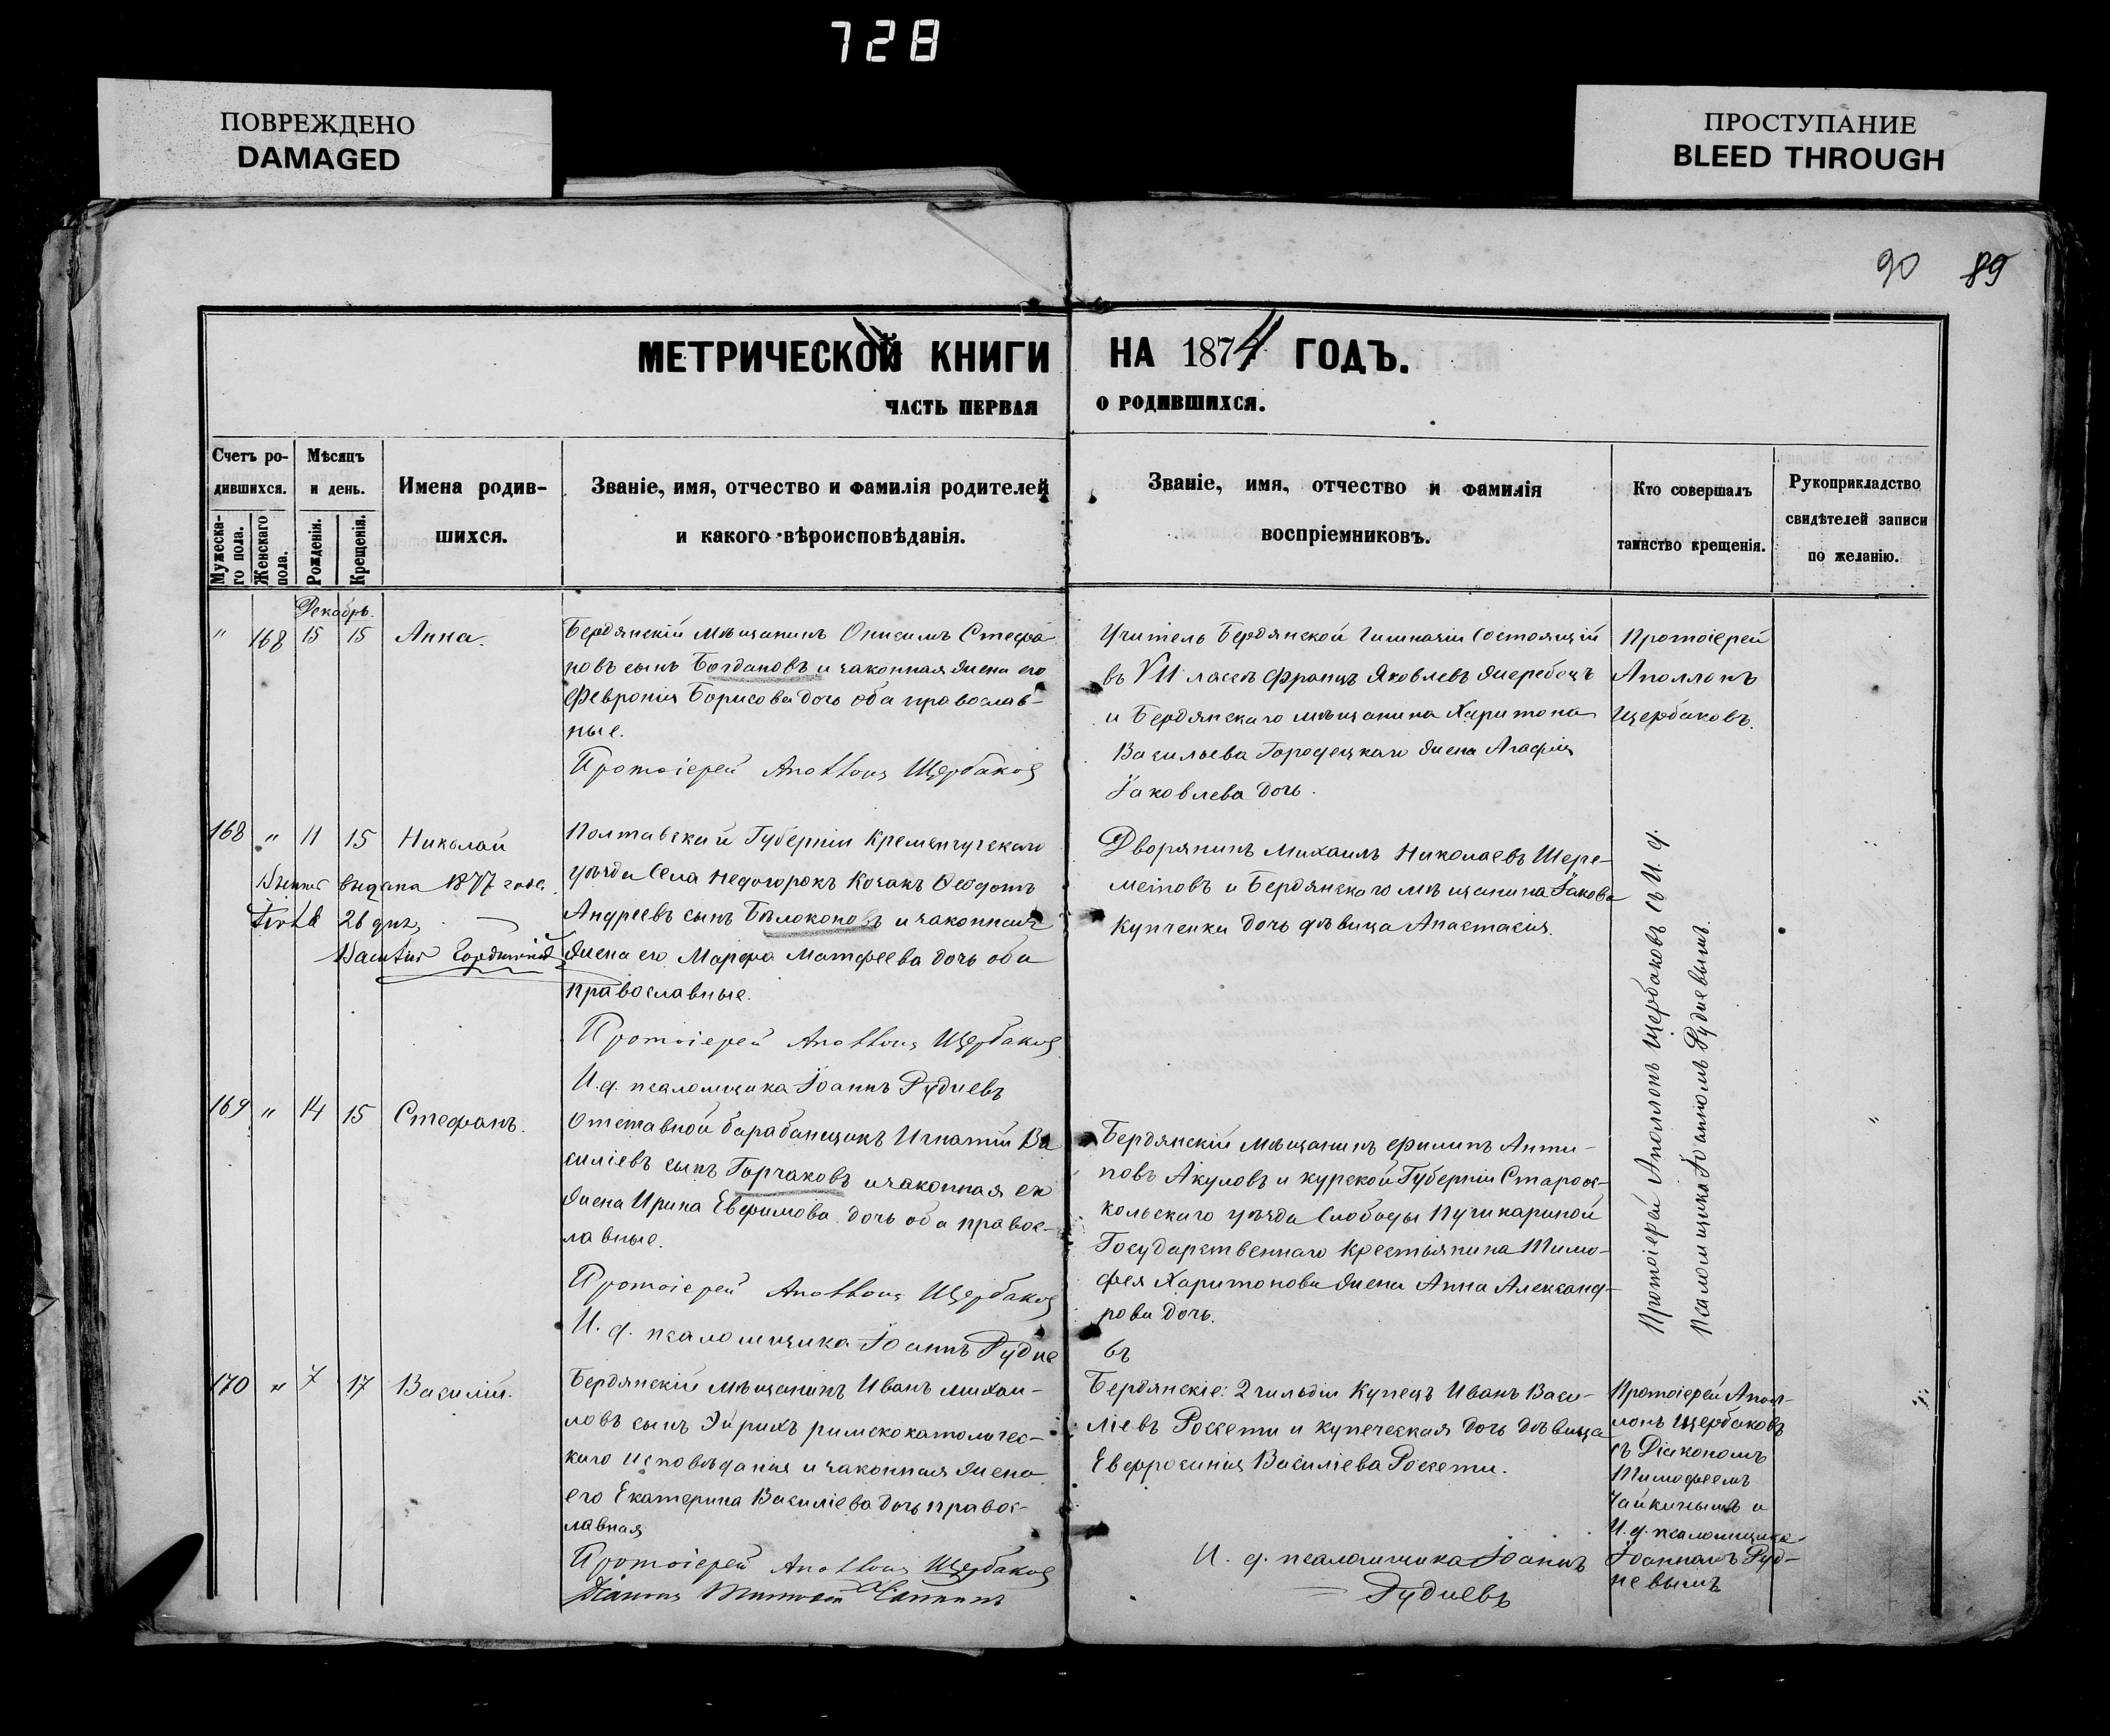 728
ПОВРЕЖДЕНО
DAMAGED
ПРОСТУПАНИЕ
BLEED THROUGH
90 89
МЕТРИЧЕСКОЙ КНИГИ НА 1874 ГОДЪ.
ЧАСТЬ ПЕРВАЯ О РОДИВШИХСЯ.
Счетъ ро-
дившихся.
Мужеска-
го пола.
Женскаго
пола.
Мѣсяцъ
и день.
Рожденія.
Крещенія.
Имена родив-
шихся.
Званіе, имя, отчество и фамилія родителей
и какого вѣроисповѣданія.
Званіе, имя, отчество и фамилія
воспріемниковъ.
Кто совершалъ
таинство крещенія.
Рукоприкладство
свидѣтелей записи
по желанію.
Декабрь.
" 168 15 15 Анна.
Бердянскій мѣщанинъ Онисимъ Стефа
новъ сынъ Богдановъ и законная жена его
Февронія Борисова дочь оба православ-
ные.
Протоіерей Аполлонъ Щербаковъ
Учитель Бердянской Гимназіи состоящій
въ VII классѣ Францъ Яковлевъ Жеребецъ
и Бердянскаго мѣщанина Харитона
Васильева Городецкаго жена Агафія
Іаковлева дочь.
Протоіерей
Аполлонъ
Щербаковъ.
168 " 11 15 Николай
выдана 1877 года
26 дня
Полтавской Губерніи Кременчугскаго
уѣзда Села Недогорокъ Козакъ Ѳеодотъ
Андреевъ сынъ Бѣлоконовъ и законная
жена его Марфа Матфеева дочь оба
православные.
Протоіерей Аполлонъ Щербаковъ
И. д. псаломщика Іоаннъ Рудневъ
Дворянинъ Михаилъ Николаевъ Шере-
метовъ и Бердянскаго мѣщанина Іакова
Купченки дочь дѣвица Анастасія.
Протоіерей Аполлонъ Щербаковъ съ И. д.
Псаломщика Іоанномъ Рудневымъ.
169 " 14 15 Стефанъ.
Отставной барабанщикъ Игнатій Ва
силіевъ сынъ Горчаковъ и законная его
жена Ирина Евфимова дочь оба правос-
лавные.
Протоіерей Аполлонъ Щербаковъ
И. д. псаломщика Іоаннъ Рудне
въ
Бердянскій мѣщанинъ Филипъ Анти-
повъ Акуловъ и Курской Губерніи Староос-
кольскаго уѣзда Слободы Пушкарной
Государственнаго крестьянина Тимо-
фея Харитонова жена Анна Александ-
рова дочь.
"
170 " 7 17 Василій.
Бердянскій мѣщанинъ Иванъ Михаи-
ловъ сынъ Эйрихъ римскокатоличес-
каго исповѣданія и законная жена
его Екатерина Василіева дочь правос-
лавная
Протоіерей Аполлонъ Щербаковъ
Діаконъ Тимофей Чайкинъ
Бердянскіе: 2 гильдіи Купецъ Иванъ Васи-
ліевъ Россети и купеческая дочь дѣвица
Евфросинія Василіева Россети.
И. д. псаломщика Іоаннъ
Рудневъ
Протоіерей Апол-
лонъ Щербаковъ
съ Діакономъ
Тимофеемъ
Чайкинымъ и
И. д. псаломщика
Іоанномъ Руд-
невымъ